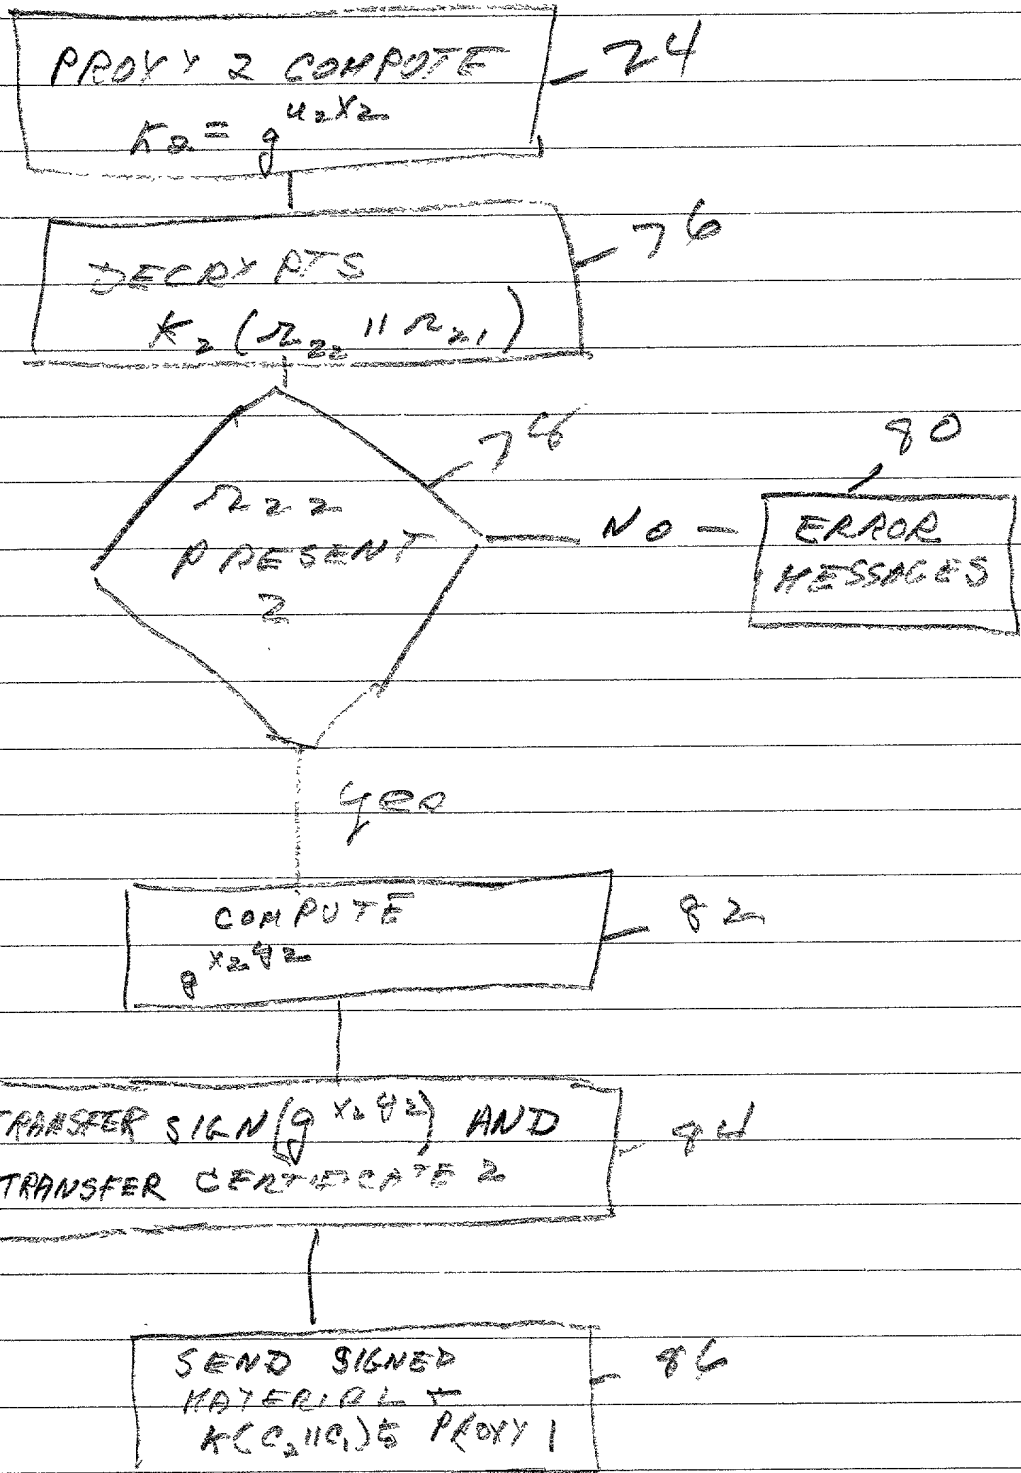 PROXY 2 COMPUTE
K2 = g^u2x2
74
DECRYPTS
K2 (r22 || r21)
76
78
r22
PRESENT
?
NO
80
ERROR
MESSAGES
yes
COMPUTE
g^x2y2
82
TRANSFER SIGN(g^x2y2) AND
TRANSFER CERTIFICATE 2
84
SEND SIGNED
MATERIAL +
K(C2||C1) to PROXY 1
86